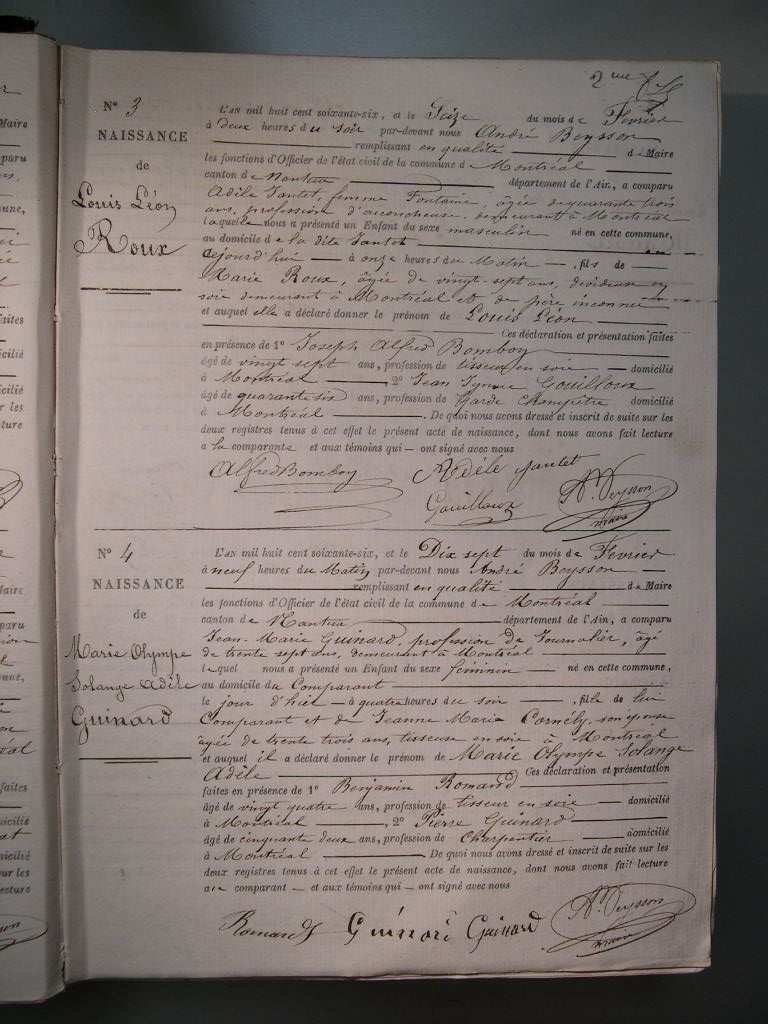 2me
N° 3
NAISSANCE
de
Louis Léon
Roux
L'AN mil huit cent soixante-six, et le Seize du mois de Février
à deux heures du soir par-devant nous André Beysson
remplissant en qualité de Maire
les fonctions d'Officier de l'état civil de la commune de Montréal
canton de Nantua département de l'Ain, a comparu
Adèle Jantet, femme Fontaine, âgée de quarante trois
ans, profession d'accoucheuse, demeurant à Montréal
laquelle nous a présenté un Enfant du sexe masculin né en cette commune,
au domicile de la dite Jantet
cejourd'hui à onze heures du Matin, fils de
Marie Roux, âgée de vingt-sept ans, dévideuse en
soie demeurant à Montréal et de père inconnu
et auquel elle a déclaré donner le prénom de Louis Léon
Ces déclaration et présentation faites
en présence de 1° Joseph Alfred Bomboy
âgé de vingt sept ans, profession de tisseur en soie domicilié
à Montréal, 2° Jean Gouilloux
âgé de quarante six ans, profession de Garde Champêtre domicilié
à Montréal. De quoi nous avons dressé et inscrit de suite sur les
deux registres tenus à cet effet le présent acte de naissance, dont nous avons fait lecture
a la comparante et aux témoins qui ont signé avec nous
Alfred Bomboy Adèle Jantet
Gouilloux An. Beysson
maire
N° 4
NAISSANCE
de
Marie Olympe
Solange Adèle
Guinard
L'AN mil huit cent soixante-six, et le Dix sept du mois de Février
à neuf heures du Matin par-devant nous André Beysson
remplissant en qualité de Maire
les fonctions d'Officier de l'état civil de la commune de Montréal
canton de Nantua département de l'Ain, a comparu
Jean-Marie Guinard, profession de Journalier, âgé
de trente sept ans, demeurant à Montréal
lequel nous a présenté un Enfant du sexe féminin né en cette commune,
au domicile du Comparant
le jour d'hier à quatre heures du soir, fille de lui
Comparant et de Jeanne Marie Comély, son épouse
âgée de trente trois ans, tisseuse en soie à Montréal
et auquel il a déclaré donner le prénom de Marie Olympe Solange
Adèle Ces déclaration et présentation
faites en présence de 1° Benjamin Romand
âgé de vingt quatre ans, profession de tisseur en soie domicilié
à Montréal, 2° Pierre Guinard
âgé de cinquante deux ans, profession de Charpentier domicilié
à Montréal. De quoi nous avons dressé et inscrit de suite sur les
deux registres tenus à cet effet le présent acte de naissance, dont nous avons fait lecture
au comparant et aux témoins qui ont signé avec nous
Romand Guinard Guinard An. Beysson
maire